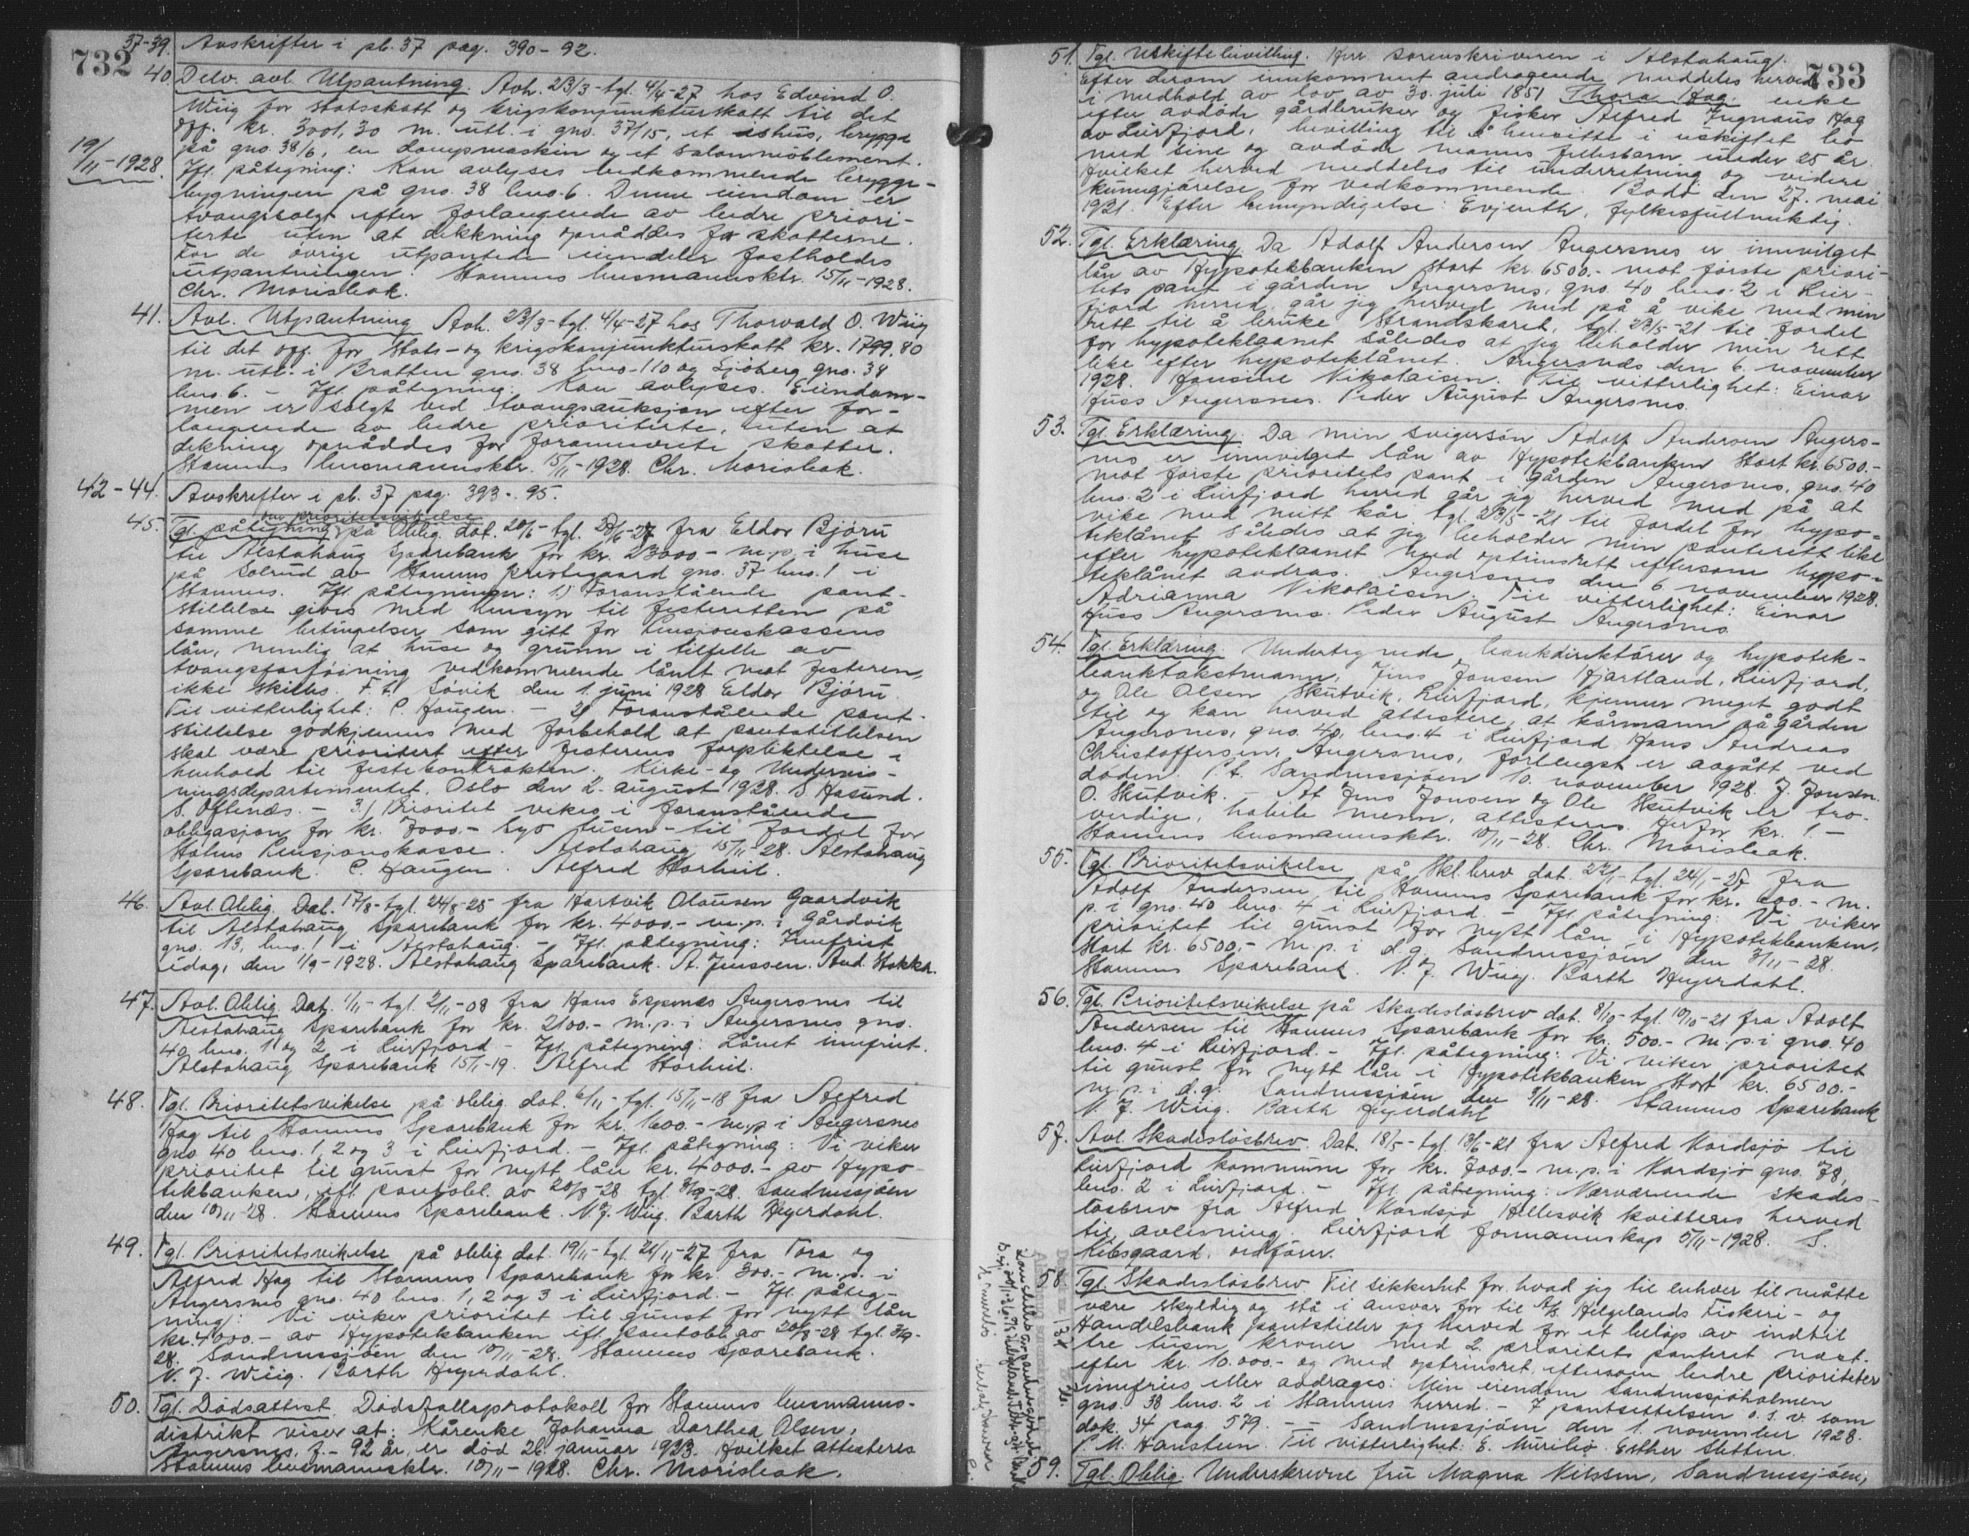 732
37-39. Avskrifter i pb. 37 pag. 390-92.
40. Delv. avl. Utpantning. Avh. 23/3 - tgl. 4/4-27 hos Edvind O.
Wiig for statsskatt og krigskonjunkturskatt til det
off. kr. 3001,30 m. utl. i gno. 37/15, et hus, brygge
på gno 38/6, en dampmaskin og et salonmøblement.
19/11-1928.
Ifl. påtegning: Kan avlyses vedkommende brygge-
bygningen på gno. 38 bno. 6. Denne eiendom er
tvangssolgt efter forlangende av bedre priori-
terte uten at dekkning opnåddes for skatterne.
For de øvrige utpantede eiendeler fastholdes
utpantningen. Stamnes lensmannsktr. 15/11-1928.
Chr. Morisbak.
41. Avl. Utpantning Avh. 23/3 - tgl. 4/4-27 hos Thorvald O. Wiig
til det off. for stats- og krigskonjunkturskatt kr. 1799,80
m. utl. i Bratten gno. 38 bno. 110 og Sjøberg gno. 38
bno. 6. - Ifl. påtegning: Kan avlyses. Eiendom-
men er solgt ved tvangsauksjon efter for-
langende av bedre prioriterte, uten at
dekning opnåddes for foranævnte skatter.
Stamnes lensmannsktr. 15/11-1928. Chr. Morisbak.
42-44. Avskrifter i pb. 37 pag. 393-95.
om prioritetsvikelse
45. Tgl. påtegning på Oblig. dat. 20/6 - tgl. 22/6-27 fra Eldor Bjøru
til Alstahaug Sparebank for kr. 23000.- m. p. i huse
på Solrud av Stamnes prestegaard gno. 37 bno. 1 i
Stamnes. Ifl. påtegninger: 1) Foranstående pant-
stillelse gives med hensyn til festeretten på
samme betingelser som gitt for Pensjonskassens
lån, nemlig at huse og grunn i tilfelle av
tvangsforføining vedkommende lånet mot festeren,
ikke skilles. F. t. Søvik den 1. juni 1928 Eldor Bjøru.
Til vitterlighet: C. Haugen. - 2) Foranstående pant-
stillelse godkjennes med forbehold at pantstillelsen
skal være prioritert efter festerens forpliktelse i
henhold til festekontrakten. Kirke- og Undervis-
ningsdepartementet, Oslo den 2. august 1928. D Hasund.
S. Oftenæs. - 3.) Prioritet vikes i foranstående
obligasjon for kr. 7000.- Syv tusen - til fordel for
Statens Pensjonskasse. Alstahaug 15/11-28. Alstahaug
Sparebank. C. Haugen. Alfred Storheil.
46. Avl. Oblig. Dat. 17/8 - tgl. 24/8-25 fra Hartvik Olausen Gaardvik
til Alstahaug Sparebank for kr. 4000.- m. p. i Gårdvik
gno. 13, bno. 1 i Alstahaug. - Ifl. påtegning: Innfriet
idag, den 1/9-1928. Alstahaug Sparebank. A. Jenssen. And. Stokka.
47. Avl. Oblig. Dat. 1/11 - tgl. 2/11-08 fra Hans Espenes Angersnes til
Alstahaug Sparebank for kr. 2100.- m. p. i Angersnes gno.
40 bno. 1 og 2 i Leirfjord - Ifl. påtegning: Lånet innfriet.
Alstahaug Sparebank 15/1-19. Alfred Storheil.
48. Tgl. Prioritetsvikelse på oblig. dat. 6/11 - tgl. 15/11-18 fra Alfred
Hag til Stamnes Sparebank for kr. 1600.- m. p. i Angersnes
gno. 40 bno. 1, 2 og 3 i Leirfjord. - Ifl. påtegning: Vi viker
prioritet til gunst for nytt lån kr. 4000.- av Hypo-
tekbanken, ifl. pantobl. av 20/8-28 tgl. 3/9-28. Sandnessjøen
den 10/11-28. Stamnes Sparebank. N. J. Wiig. Barth Heyerdahl.
49. Tgl. Prioritetsvikelse på oblig. dat. 19/11 - tgl. 21/11-27 fra Tora og
Alfred Hag til Stamnes Sparebank for kr. 300.- m. p. i
Angersnes gno. 40 bno. 1, 2 og 3 i Leirfjord. - Ifl. påteg-
ning: Vi viker prioritet til gunst for nytt lån
kr. 4000.- av Hypotekbanken ifl. pantobl. av 20/8-28 tgl. 3/9-
28. Sandnessjøen den 10/11-28. Stamnes Sparebank.
N. J. Wiig. Barth Heyerdahl.
50. Tgl. Dødsattest. Dødsfallsprotokoll for Stamnes lensmanns-
distrikt viser at: Kårenke Johanna Dorthea Olsen,
Angersnes, f. - 92 år, er død 26. januar 1923. Hvilket attesteres
Stamnes lensmannsktr. 10/11-1928. Chr. Morisbak.
733
51. Tgl. Uskiftebevilling. Herr sorenskriveren i Alstahaug.
Efter derom innkommet andragende meddeles herved
i medhold av lov av 30. juli 1851 Thora Hag, enke
efter avdøde gårdbruker og fisker Alfred Ingnæus Hag
av Leirfjord, bevilling til å hensitte i uskiftet bo
med sine og avdøde manns fellesbarn under 25 år.
Hvilket herved meddeles til underretning og videre
kunngjørelse for vedkommende. Bodø den 27. mai
1921. Efter bemyndigelse: Evjenth, fylkesfullmektig.
52. Tgl. Erklæring. Da Adolf Andersen Angersnes er innvilget
lån av Hypotekbanken stort kr. 6500.- mot første priori-
tets pant i gården Angersnes, gno. 40 bno. 2 i Leir-
fjord herred, går jeg herved med på å vike med min
rett til å bruke Strandskaret, tgl. 23/5-21 til fordel
for hypoteklaanet således at jeg beholder min rett
like efter hypoteklånet. Angersnes den 6. november
1928. Hansine Nikolaisen. Til vitterlighet: Einar
Huss Angersnes. Peder August Angersnes.
53. Tgl. Erklæring. Da min svigersøn Adolf Andersen Angers-
nes er innvilget lån av Hypotekbanken stort kr. 6500.-
mot første prioritets pant i gården Angersnes, gno. 40
bno. 2 i Leirfjord herred går jeg herved med på at
vike med mitt kår tgl. 23/5-21 til fordel for hypo-
teklånet således at jeg beholder min panterett like
efter hypoteklaanet med optrinsrett eftersom hypo-
teklånet avdras. Angersnes den 6. november 1928.
Adrianna Nikolaisen. Til vitterlighet: Einar
Huss Angersnes. Peder August Angersnes.
54. Tgl. Erklæring. Undertegnede bankdirektører og hypotek-
banktakstmann, Jens Jonsen Hjartland, Leirfjord,
og Ole Olsen Skutvik, Leirfjord, kjenner meget godt
til og kan herved attestere, at kårmann på gården
Angersnes, gno. 40, bno. 4 i Leirfjord Hans Andreas
Christoffersen, Angersnes, forlengst er avgått ved
døden. P. t. Sandnessjøen 10. november 1928. J. Jonsen.
O. Skutvik. - At Jens Jonsen og Ole Skutvik er tro-
verdige, habile menn, attesteres. Herfor kr. 1.-
Stamnes lensmannsktr. 10/11-28. Chr. Morisbak.
55. Tgl. Prioritetsvikelse på Skl. brev dat. 22/1 - tgl. 24/1-27 fra
Adolf Andersen til Stamnes Sparebank for kr. 600.- m.
p. i gno. 40 bno. 4 i Leirfjord. - Ifl. påtegning: Vi viker
prioritet til gunst for nytt lån i Hypotekbanken,
stort kr. 6500.- m. p. i d. g. Sandnessjøen den 9/11-28.
Stamnes Sparebank N. J. Wiig. Barth Heyerdahl.
56. Tgl. Prioritetsvikelse på Skadesløsbrev dat. 8/10 - tgl. 10/10-21 fra Adolf
Andersen til Stamnes Sparebank for kr. 500.- m. p. i gno. 40
bno. 4 i Leirfjord. - Ifl. påtegning: Vi viker prioritet
til gunst for nytt lån i Hypotekbanken stort kr. 6500.-
m. p. i d. g. Sandnessjøen den 9/11-28. Stamnes Sparebank
N. J. Wiig. Barth Heyerdahl
57. Avl. Skadesløsbrev. Dat. 18/5 - tgl. 13/6-21 fra Alfred Nordsjø til
Leirfjord kommune for kr. 7000.- m. p. i Nordsjø gno. 78,
bno. 2 i Leirfjord. - Ifl. påtegning: Nærværende skades-
løsbrev fra Alfred Nordsjø Hellesvik kvitteres herved
til avlesning. Leirfjord formannskap 5/11-1928. S.
Kibsgaard, ordfører.
58. Tgl. Skadesløsbrev. Til sikkerhet for hvad jeg til enhver til måtte
være skyldig og stå i ansvar for til A/S Helgelands Fiskeri- og
Handelsbank pantstiller jeg herved for et beløp av indtil
tre tusen kroner med 2. prioritets panteret næst-
efter kr. 10.000.- og med optrinsret eftersom bedre prioriteter
innfries eller avdrages: Min eiendom Sandnessjøholmen
gno. 38 bno. 2 i Stamnes herred. - I pantsettelsen o. s. v. som
dok. 34 pag. 579. - - Sandnessjøen den 1. november 1928.
P. M. Hanstein. Til vitterlighet: E. Meireleø. Esther Sletten.
59. Tgl. Oblig. Underskrevne fru Magna Nilssen, Sandnessjøen,